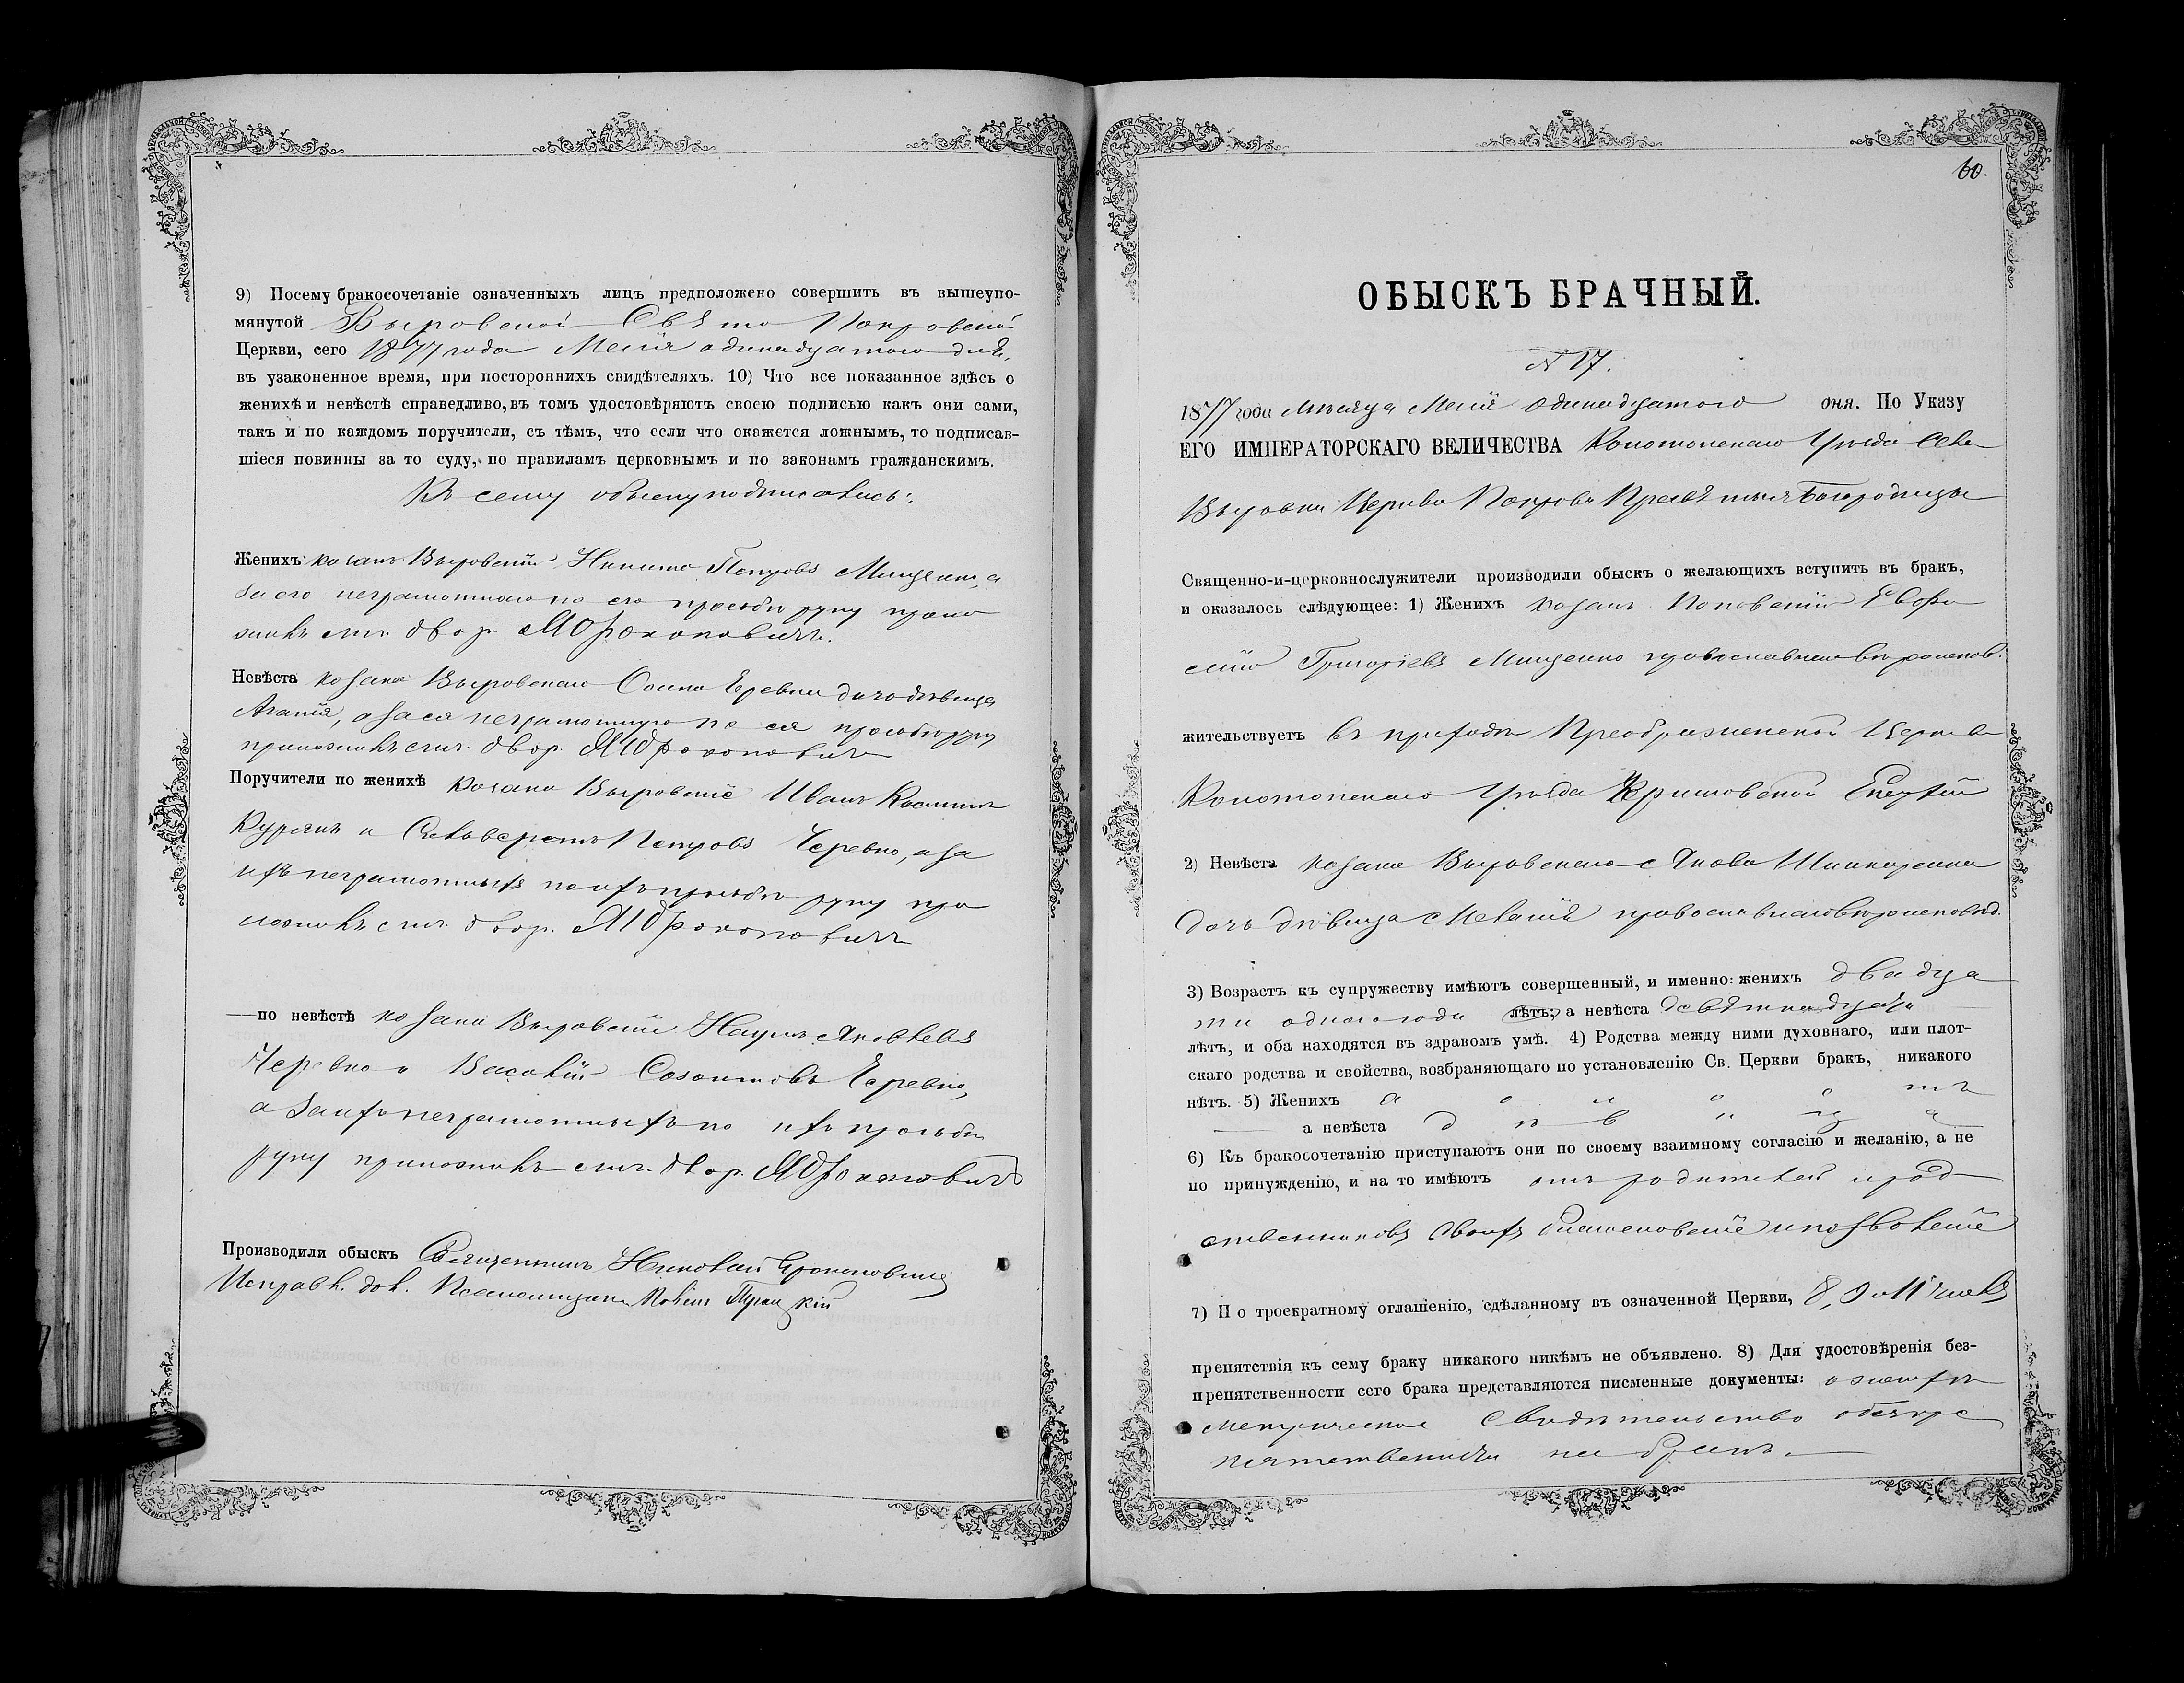 9) Посему бракосочетаніе означенныхъ лицъ предположено совершить въ вышеупо-
мянутой Выровской Свято Покровской
Церкви, сего 1877 года Маія одинадцатого дня,
въ узаконенное время, при постороннихъ свидѣтеляхъ. 10) Что все показанное здѣсь о
женихѣ и невѣстѣ справедливо, въ томъ удостовѣряютъ своею подписью какъ они сами,
такъ и по каждомъ поручители, съ тѣмъ, что если что окажется ложнымъ, то подписав-
шіеся повинны за то суду, по правиламъ церковнымъ и по законамъ гражданскимъ.
Къ сему обыску подписались:
Женихъ козакъ Выровскій Никита Петровъ Мищенко, а
за его неграмотного по его прозьбѣ руку прило
жилъ двор. Прокоповичъ.
Невѣста козака Выровского Осипа Черевка дочь дѣвица
Агапія, а за ея неграмотную по ея прозьбѣ руку
приложилъ двор. Прокоповичъ
Поручители по женихѣ козаки Выровскіе Иванъ Касьяновъ
Курячъ и Селиверстъ Петровъ Черевко, а за
ихъ неграмотныхъ по ихъ прозьбѣ руку при
ложилъ двор. Прокоповичъ
—по невѣстѣ козаки Выровскіе Наумъ Яковлевъ
Черевко и Василій Созонтовъ Черевко,
а за ихъ неграмотныхъ по ихъ прозьбѣ
руку приложилъ двор. Прокоповичъ
Производили обыскъ Священникъ Николай
Исправл. дол. Псаломщика Троицкій
60.
ОБЫСКЪ БРАЧНЫЙ.
№ 17.
1877 года мѣсяца Маія одинадцатого дня. По Указу
ЕГО ИМПЕРАТОРСКАГО ВЕЛИЧЕСТВА Конотопскаго Уѣзда села
Выровки Церкви Покрова Пресвятыя Богородицы
Священно-и-церковнослужители производили обыскъ о желающихъ вступить въ бракъ,
и оказалось слѣдующее: 1) Женихъ козакъ Поповскій
Григоріевъ Мищенко православнаго вѣроисповѣ.
жительствуетъ въ приходѣ Преображенской Церкви
Конотопскаго Уѣзда Черниговской Епархіи
2) Невѣста козака Выровскаго Якова Шинкаренка
дочь дѣвица Меланія православнаго вѣроисповѣд.
3) Возрастъ къ супружеству имѣютъ совершенный, и именно: женихъ двадца
ти одного года лѣтъ; а невѣста девятнадцати
лѣтъ, и оба находятся въ здравомъ умѣ. 4) Родства между ними духовнаго, или плот-
скаго родства и свойства, возбраняющаго по установленію Св. Церкви бракъ, никакого
нѣтъ. 5) Женихъ
а невѣста д ѣ в и ц а
6) Къ бракосочетанію приступаютъ они по своему взаимному согласію и желанію, а не
по принужденію, и на то имѣютъ отъ родителей и род
ственниковъ своихъ благословеніе и позволеніе
7) По троекратному оглашенію, сдѣланному въ означенной Церкви, 8, 9 и 11 числъ
препятствія къ сему браку никакого никѣмъ не объявлено. 8) Для удостовѣренія без-
препятственности сего брака представляются писменные документы: о женихѣ
метрическое свидѣтельство о безпре
пятственности на бракъ.